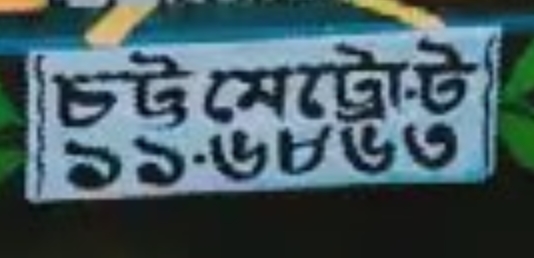 চট্ট মেট্রো-ট
১১-৬৮৬৩